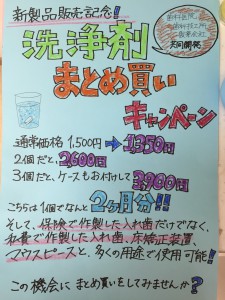 新製品販売記念!
歯科医院
歯科技工所
製薬会社
共同開発
洗浄剤
まとめ買い
キャンペーン
通常価格 1,500円→1,350円
2個だと、2,600円
3個だと、ケースもお付けして
3,900円
こちらは1個でなんと2ヶ月分!!
そして、保険で作製した入れ歯だけでなく、
私費で作製した入れ歯、床矯正装置、
マウスピースと、多くの用途で使用可能!
この機会に まとめ買いをしてみませんか?